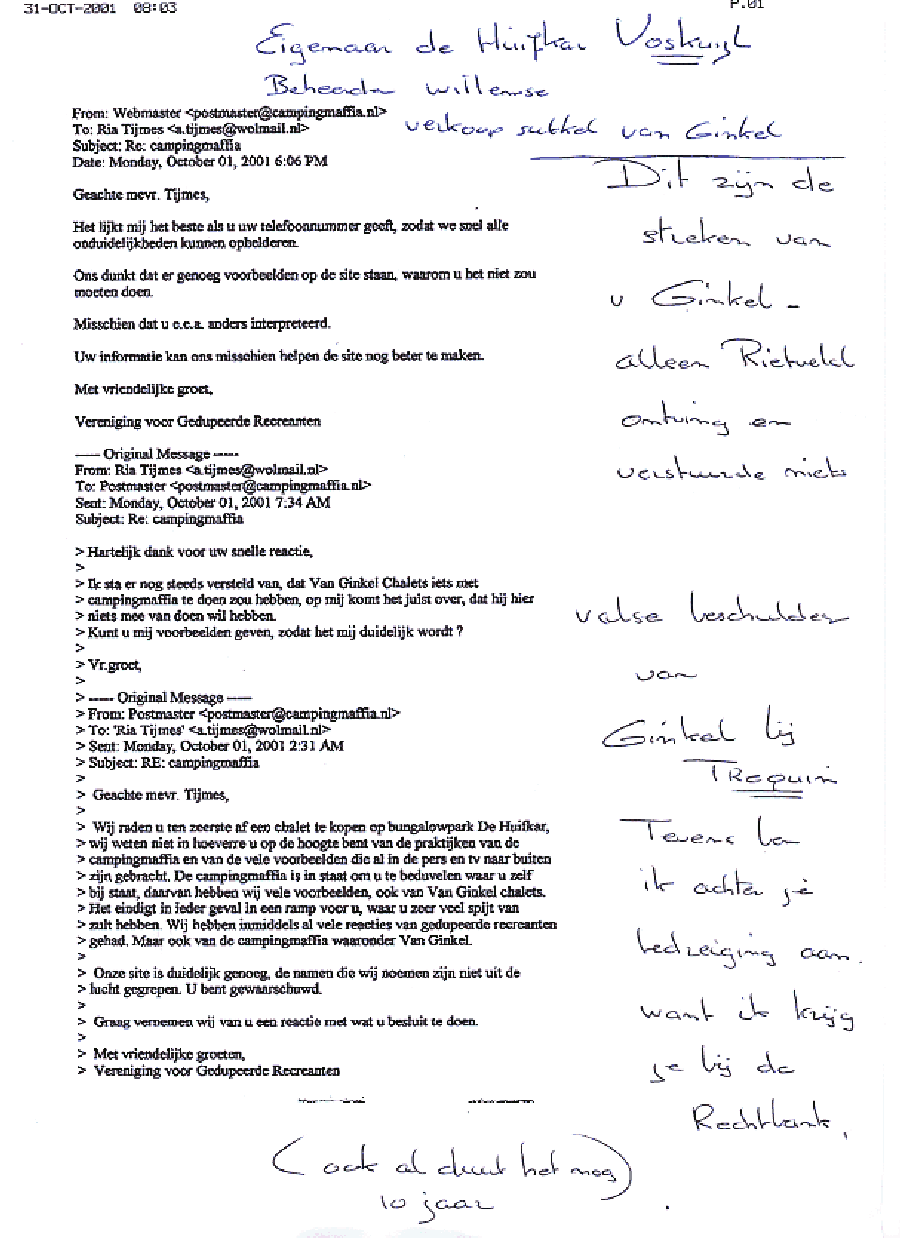 31-OCT-2001 08:03
P.01
Eigenaar de Huifkar Voskuyl
Beheerder willemse
verkoop sukkel van Ginkel
From: Webmaster <postmaster@campingmaffia.nl>
To: Ria Tijmes <a.tijmes@wolmail.nl>
Subject: Re: campingmaffia
Date: Monday, October 01, 2001 6:06 PM
Geachte mevr. Tijmes,
Het lijkt mij het beste als u uw telefoonnummer geeft, zodat we snel alle
onduidelijkheden kunnen ophelderen.
Ons dunkt dat er genoeg voorbeelden op de site staan, waarom u het niet zou
moeten doen.
Misschien dat u e.e.a. anders interpreteerd.
Uw informatie kan ons misschien helpen de site nog beter te maken.
Met vriendelijke groet,
Vereniging voor Gedupeerde Recreanten
----- Original Message -----
From: Ria Tijmes <a.tijmes@wolmail.nl>
To: Postmaster <postmaster@campingmaffia.nl>
Sent: Monday, October 01, 2001 7:34 AM
Subject: Re: campingmaffia
> Hartelijk dank voor uw snelle reactie,
>
> Ik sta er nog steeds versteld van, dat Van Ginkel Chalets iets met
> campingmaffia te doen zou hebben, op mij komt het juist over, dat hij hier
> niets mee van doen wil hebben.
> Kunt u mij voorbeelden geven, zodat het mij duidelijk wordt ?
>
> Vr.groet,
>
> ----- Original Message -----
> From: Postmaster <postmaster@campingmaffia.nl>
> To: 'Ria Tijmes' <a.tijmes@wolmail.nl>
> Sent: Monday, October 01, 2001 2:31 AM
> Subject: RE: campingmaffia
>
> Geachte mevr. Tijmes,
>
> Wij raden u ten zeerste af een chalet te kopen op bungalowpark De Huifkar,
> wij weten niet in hoeverre u op de hoogte bent van de praktijken van de
> campingmaffia en van de vele voorbeelden die al in de pers en tv naar buiten
> zijn gebracht. De campingmaffia is in staat om u te beduvelen waar u zelf
> bij staat, daarvan hebben wij vele voorbeelden, ook van Van Ginkel chalets.
> Het eindigt in ieder geval in een ramp voor u, waar u zeer veel spijt van
> zult hebben. Wij hebben inmiddels al vele reacties van gedupeerde recreanten
> gehad. Maar ook van de campingmaffia waaronder Van Ginkel.
>
> Onze site is duidelijk genoeg, de namen die wij noemen zijn niet uit de
> lucht gegrepen. U bent gewaarschuwd.
>
> Graag vernemen wij van u een reactie met wat u besluit te doen.
>
> Met vriendelijke groeten,
> Vereniging voor Gedupeerde Recreanten
Dit zijn de
streken van
v Ginkel -
alleen Rietveld
ontving en
verstuurde niets
valse beschulder
van
Ginkel bij
TRequin
Tevens ben
ik achter je
bedreiging aan.
want ik krijg
je bij de
Rechtbank,
(ook al duurt het nog)
10 jaar